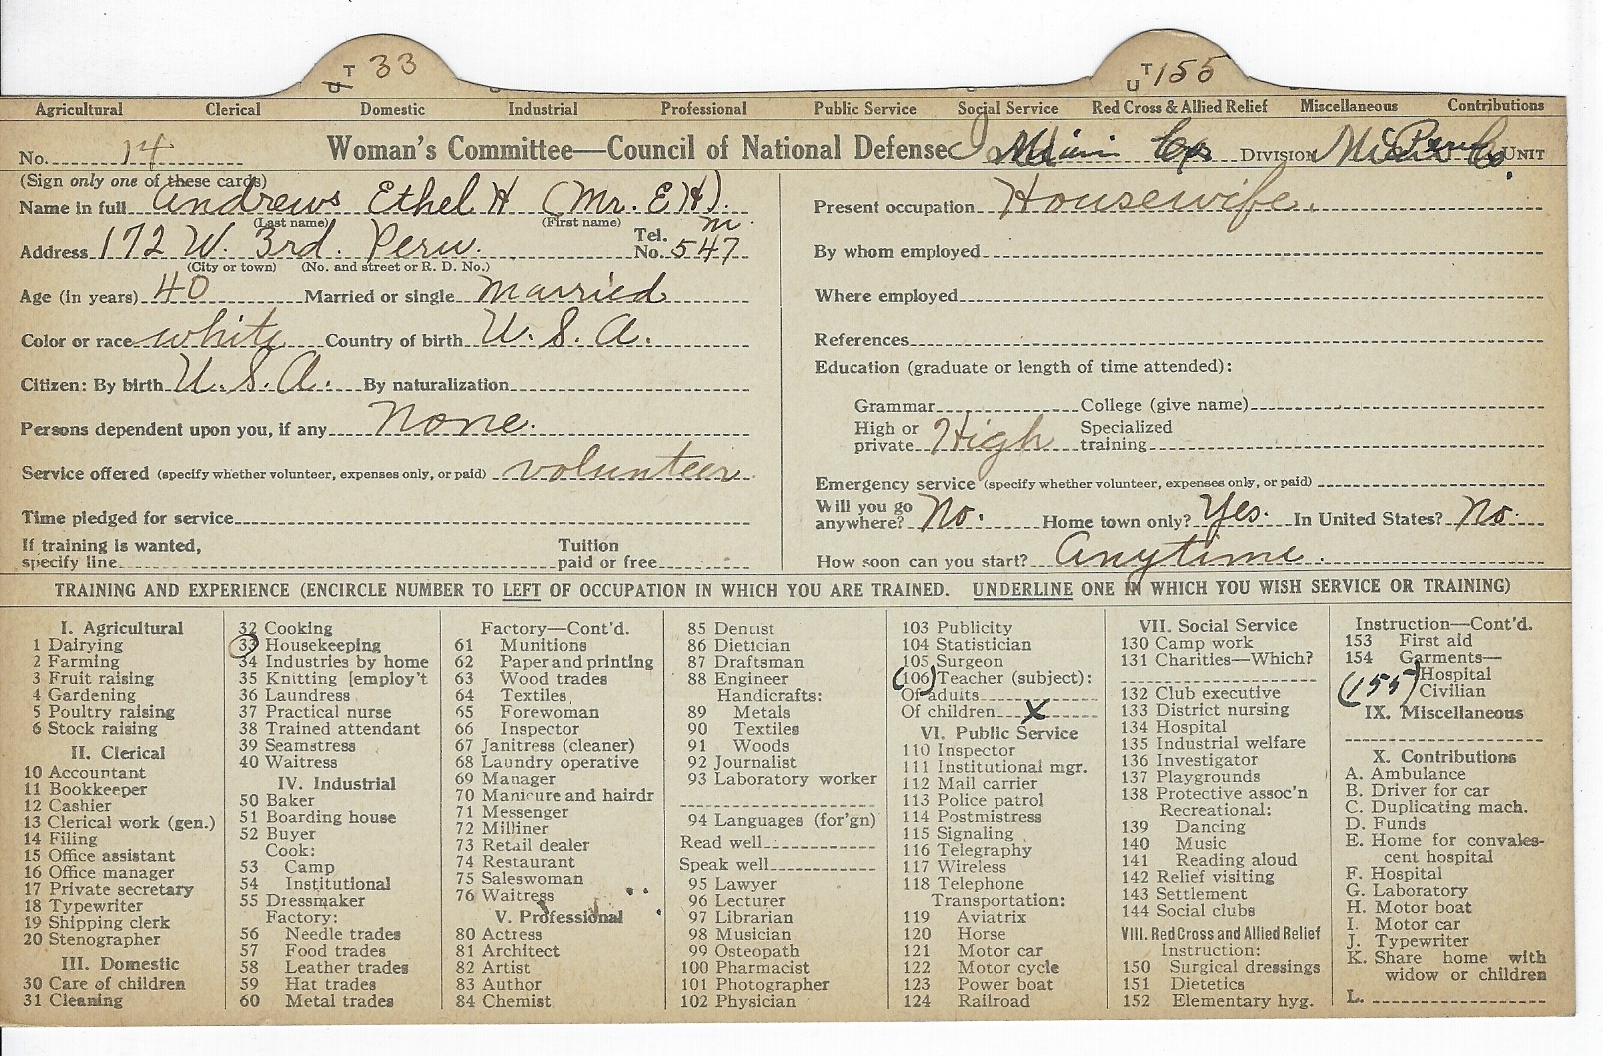 T 33
U T 155
Agricultural Clerical Domestic Industrial Professional Public Service Social Service Red Cross & Allied Relief Miscellaneous Contributions
No. 14 Woman's Committee—Council of National Defense Miami Co. DIVISION Peru UNIT
(Sign only one of these cards)
Name in full Andrews Ethel H (Mr. E H).
(Last name) (First name)
Address 172 W. 3rd. Peru. Tel. No. 547 m
(City or town) (No. and street or R. D. No.)
Age (in years) 40 Married or single married
Color or race white Country of birth U. S. A.
Citizen: By birth U. S. A. By naturalization
Persons dependent upon you, if any none.
Service offered (specify whether volunteer, expenses only, or paid) volunteer
Time pledged for service
If training is wanted, specify line Tuition paid or free
Present occupation Housewife.
By whom employed
Where employed
References
Education (graduate or length of time attended):
Grammar College (give name)
High or private High Specialized training
Emergency service (specify whether volunteer, expenses only, or paid)
Will you go anywhere? No. Home town only? Yes. In United States? No.
How soon can you start? Anytime.
TRAINING AND EXPERIENCE (ENCIRCLE NUMBER TO LEFT OF OCCUPATION IN WHICH YOU ARE TRAINED. UNDERLINE ONE IN WHICH YOU WISH SERVICE OR TRAINING)
I. Agricultural
1 Dairying
2 Farming
3 Fruit raising
4 Gardening
5 Poultry raising
6 Stock raising
II. Clerical
10 Accountant
11 Bookkeeper
12 Cashier
13 Clerical work (gen.)
14 Filing
15 Office assistant
16 Office manager
17 Private secretary
18 Typewriter
19 Shipping clerk
20 Stenographer
III. Domestic
30 Care of children
31 Cleaning
32 Cooking
33 Housekeeping
34 Industries by home
35 Knitting [employ't
36 Laundress
37 Practical nurse
38 Trained attendant
39 Seamstress
40 Waitress
IV. Industrial
50 Baker
51 Boarding house
52 Buyer
Cook:
53 Camp
54 Institutional
55 Dressmaker
Factory:
56 Needle trades
57 Food trades
58 Leather trades
59 Hat trades
60 Metal trades
Factory—Cont'd.
61 Munitions
62 Paper and printing
63 Wood trades
64 Textiles
65 Forewoman
66 Inspector
67 Janitress (cleaner)
68 Laundry operative
69 Manager
70 Manicure and hairdr
71 Messenger
72 Milliner
73 Retail dealer
74 Restaurant
75 Saleswoman
76 Waitress
V. Professional
80 Actress
81 Architect
82 Artist
83 Author
84 Chemist
85 Dentist
86 Dietician
87 Draftsman
88 Engineer
Handicrafts:
89 Metals
90 Textiles
91 Woods
92 Journalist
93 Laboratory worker
94 Languages (for'gn)
Read well
Speak well
95 Lawyer
96 Lecturer
97 Librarian
98 Musician
99 Osteopath
100 Pharmacist
101 Photographer
102 Physician
103 Publicity
104 Statistician
105 Surgeon
(106) Teacher (subject):
Of adults
Of children X
VI. Public Service
110 Inspector
111 Institutional mgr.
112 Mail carrier
113 Police patrol
114 Postmistress
115 Signaling
116 Telegraphy
117 Wireless
118 Telephone
Transportation:
119 Aviatrix
120 Horse
121 Motor car
122 Motor cycle
123 Power boat
124 Railroad
VII. Social Service
130 Camp work
131 Charities—Which?
132 Club executive
133 District nursing
134 Hospital
135 Industrial welfare
136 Investigator
137 Playgrounds
138 Protective assoc'n
Recreational:
139 Dancing
140 Music
141 Reading aloud
142 Relief visiting
143 Settlement
144 Social clubs
VIII. Red Cross and Allied Relief
Instruction:
150 Surgical dressings
151 Dietetics
152 Elementary hyg.
Instruction—Cont'd.
153 First aid
154 Garments—
Hospital
(155) Civilian
IX. Miscellaneous
X. Contributions
A. Ambulance
B. Driver for car
C. Duplicating mach.
D. Funds
E. Home for convales-
cent hospital
F. Hospital
G. Laboratory
H. Motor boat
I. Motor car
J. Typewriter
K. Share home with
widow or children
L.